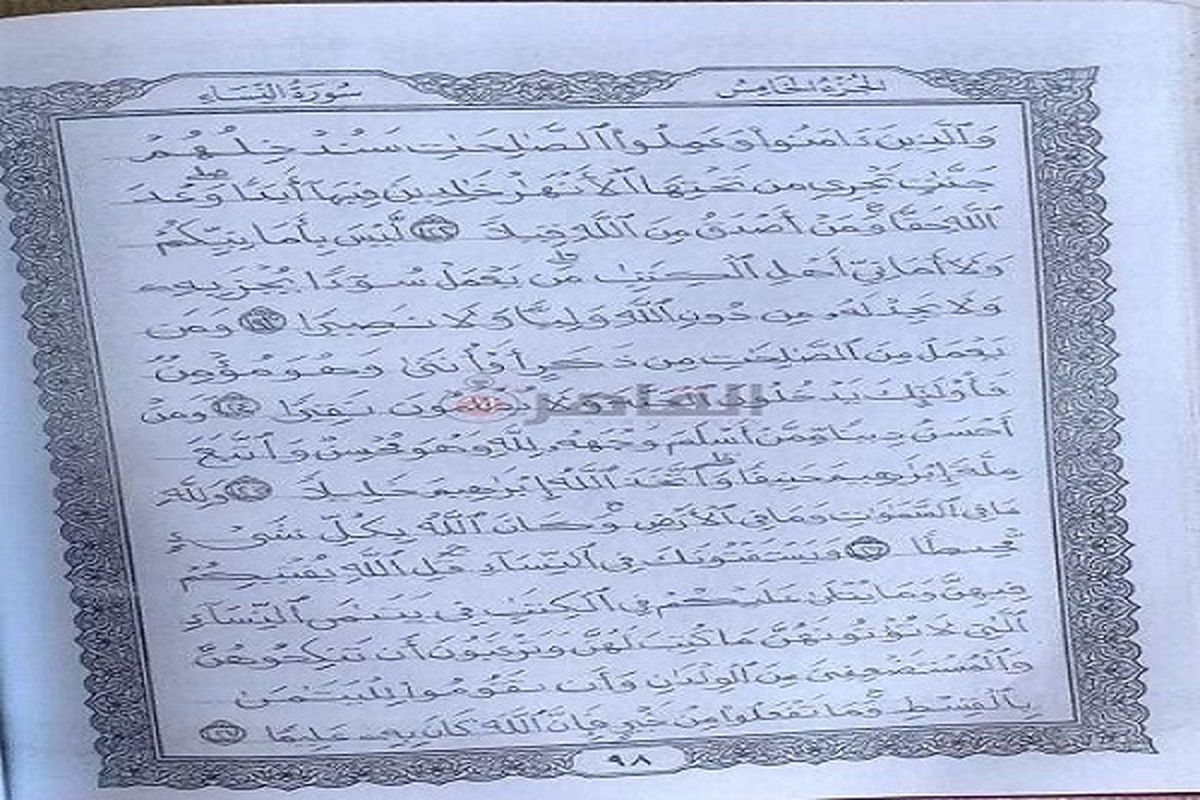 الجزء الخامس
سورة النساء
وَٱلَّذِينَ ءَامَنُوا۟ وَعَمِلُوا۟ ٱلصَّٰلِحَٰتِ سَنُدْخِلُهُمْ
جَنَّٰتٍ تَجْرِى مِن تَحْتِهَا ٱلْأَنْهَٰرُ خَٰلِدِينَ فِيهَآ أَبَدًا ۖ وَعْدَ
ٱللَّهِ حَقًّا ۚ وَمَنْ أَصْدَقُ مِنَ ٱللَّهِ قِيلًا ١٢٢ لَّيْسَ بِأَمَانِيِّكُمْ
وَلَآ أَمَانِىِّ أَهْلِ ٱلْكِتَٰبِ ۗ مَن يَعْمَلْ سُوٓءًا يُجْزَ بِهِۦ
وَلَا يَجِدْ لَهُۥ مِن دُونِ ٱللَّهِ وَلِيًّا وَلَا نَصِيرًا ١٢٣ وَمَن
يَعْمَلْ مِنَ ٱلصَّٰلِحَٰتِ مِن ذَكَرٍ أَوْ أُنثَىٰ وَهُوَ مُؤْمِنٌ
فَأُو۟لَٰٓئِكَ يَدْخُلُونَ ٱلْجَنَّةَ وَلَا يُظْلَمُونَ نَقِيرًا ١٢٤ وَمَنْ
أَحْسَنُ دِينًا مِّمَّنْ أَسْلَمَ وَجْهَهُۥ لِلَّهِ وَهُوَ مُحْسِنٌ وَٱتَّبَعَ
مِلَّةَ إِبْرَٰهِيمَ حَنِيفًا ۗ وَٱتَّخَذَ ٱللَّهُ إِبْرَٰهِيمَ خَلِيلًا ١٢٥ وَلِلَّهِ
مَا فِى ٱلسَّمَٰوَٰتِ وَمَا فِى ٱلْأَرْضِ ۚ وَكَانَ ٱللَّهُ بِكُلِّ شَىْءٍ
مُّحِيطًا ١٢٦ وَيَسْتَفْتُونَكَ فِى ٱلنِّسَآءِ ۖ قُلِ ٱللَّهُ يُفْتِيكُمْ
فِيهِنَّ وَمَا يُتْلَىٰ عَلَيْكُمْ فِى ٱلْكِتَٰبِ فِى يَتَٰمَى ٱلنِّسَآءِ
ٱلَّٰتِى لَا تُؤْتُونَهُنَّ مَا كُتِبَ لَهُنَّ وَتَرْغَبُونَ أَن تَنكِحُوهُنَّ
وَٱلْمُسْتَضْعَفِينَ مِنَ ٱلْوِلْدَٰنِ وَأَن تَقُومُوا۟ لِلْيَتَٰمَىٰ
بِٱلْقِسْطِ ۚ وَمَا تَفْعَلُوا۟ مِنْ خَيْرٍ فَإِنَّ ٱللَّهَ كَانَ بِهِۦ عَلِيمًا ١٢٧
٩٨